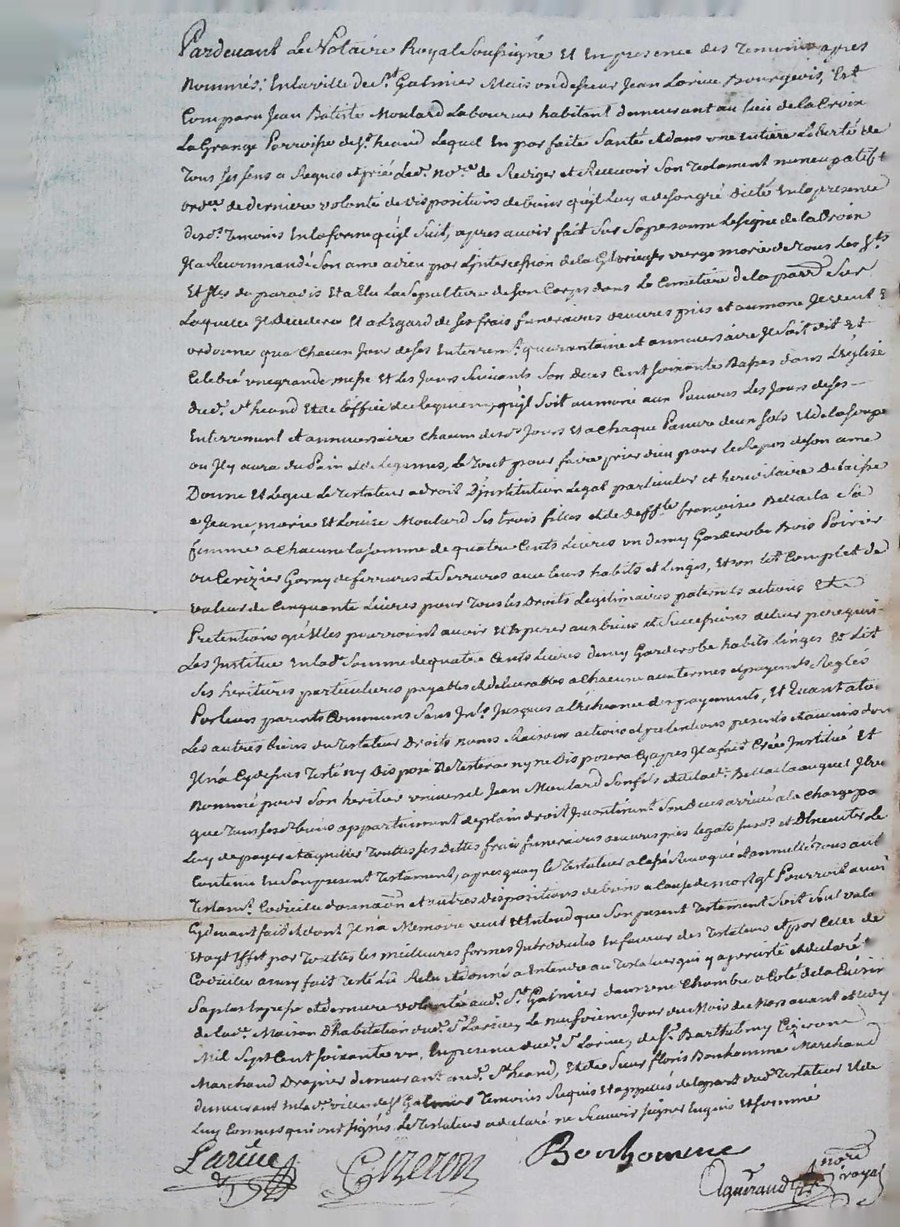 Pardevant Le Notaire Royal Soussigné Et En presence des Temoins apres
Nommés, En la ville de St Galmier Maison de sieur Jean Larive Bourgeois, Est
Comparu Jean Batiste Moulard Laboureur habitant demeurant au lieu de la Croix
La Grange Parroisse de St heand Lequel En parfaite Santé et dans une Entiere Liberté de
Tous ses sens a Requis et prié Led. nore de Rediger et Recevoir Son Testament nuncupatif et
ordre de derniere volonté de dispositions de biens qu'il Luy a de son gré dicté En la presence
desd. Temoins En la forme qu'il Suit, apres avoir fait Sur Sa personne Le Signe de la Croix
Il a Recommandé Son ame a dieu par L'intercession de la Glorieuse vierge marie de tous Les Sts
Et Stes du paradis Et a Elu La Sepulture de Son Corps dans Le Cimetiere de la parr Sur
Laquelle Il decedera Et a L'Egard de ses frais funeraires oeuvres pies et aumone Il veut Et
ordonne que Chacun Jour de ses Enterremt quarantaine et anniversaire Il Soit dit Et
Celebré une grande messe Et Les Jours Suivants Son deces Cent soixante Basses dans L'église
dud. St heand Et de L'office de Requiem, qu'il Soit aumoné aux Pauvres Les Jours de ses
Enterrement et anniversaire Chacun desd. Jours Et a Chaque Pauvre deux sols Et de la Soupe
ou Il y aura du Pain et des Legumes, Le Tout pour faire prier dieu pour le Repos de son ame
Donne Et Legue Le Testateur a droit D'institution Legat particulier et hereditaire De laisse
a Jeanne, marie Et Louise Moulard Ses trois filles Et de deffte françoise Bellacla Sa
femme a Chacune la Somme de quatre Cents Livres un demy Garderobe Bois Poirier
ou Cerizier Garny de ferrures et Serrures avec leurs habits et Linges, Et un lit Complet de
valeur de Cinquante Livres pour Tous les Droits Legitimaires paternels actions Et
Pretentions qu'Elles pourroient avoir Et Esperer aux biens et Successions de leur pere qui
Les Institue En lad. Somme de quatre Cents Livres demy Garderobe habits linges Et Lit
Ses heritieres particulieres payables et delivrables a Chacune aux termes et payements Reglés
Par leurs parents Communs Sans Int. Jusques a l'écheance des payements, Et Quant a tous
Les autres biens du Testateur Droits noms Raisons actions et pretentions presents et avenir dont
Il n'a Cy dessus Testé ny Disposé Ne Testera ny ne Disposera Cy apres Il a fait Créé Institué Et
Nommé pour Son heritier universel Jean Moulard Son fils et de lad. Bellacla auquel Il veut
que Tous ses d. biens appartiennent de plein droit Incontinent Son deces arrivé a la Charge par
Luy de payer et aquitter Toutes ses Dettes frais funeraires oeuvres pies legats Susd. et D'Executer Le
Contenu En Son present Testament, apres quoy Le Testateur a Cassé Revoqué et annullé Tous autres
Testamt. Codicille donnaon et autres dispositions de biens a Cause de mort qt Pourroit avoir
Cy devant fait et dont Il n'a Memoire veut et Entend que Son present Testament Soit Seul valable
Et ayt Effet par Toutes les meilleures formes Introduites En faveur des Testateurs et par Celle de
Codicille ainsy fait Testé Lû Relu et donné a Entendre au Testateur qui y a persisté et declaré
Sa plus Expresse et derniere volonté aud. St Galmier dans une Chambre a Coté de la Cuisine
de lad. Maison D'habitation dud. Sr Larive, Le neufvieme Jour du Mois de Mars avant Midy
Mil Sept Cent soixante un, En presence dud. Sr Larive, de Sr. Barthelmy Cizeron
Marchand Drapier demeurant aud. St heand, Et de Sieur floris Bonhomme Marchand
demeurant En lad. ville de St Galmier Temoins Requis Et appellés de la part dud. Testateur Et de
Luy Connus qui ont Signé, Le Testateur a declaré ne Sçavoir signer Enquis Et sommé
Larive
Cizeron
Bonhomme
Aguiraud nore royal